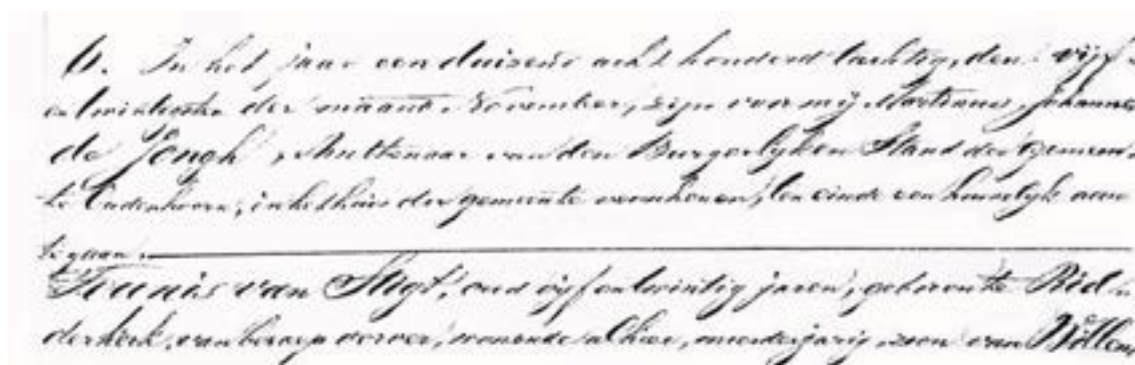 6. In het jaar een duizend acht honderd tachtig, den vijf
en twintigsten der maand November, zijn voor mij Martinus Johannes
de Jongh, Ambtenaar van den Burgerlijken Stand der Gemeen
te Oudenhoorn, in het huis der gemeente verschenen, ten einde een huwelijk aan
te gaan.
Teunis van Sligt, oud vijf en twintig jaren, geboren te Rid
derkerk, van beroep verver, wonende alhier, meerderjarige zoon van Willem